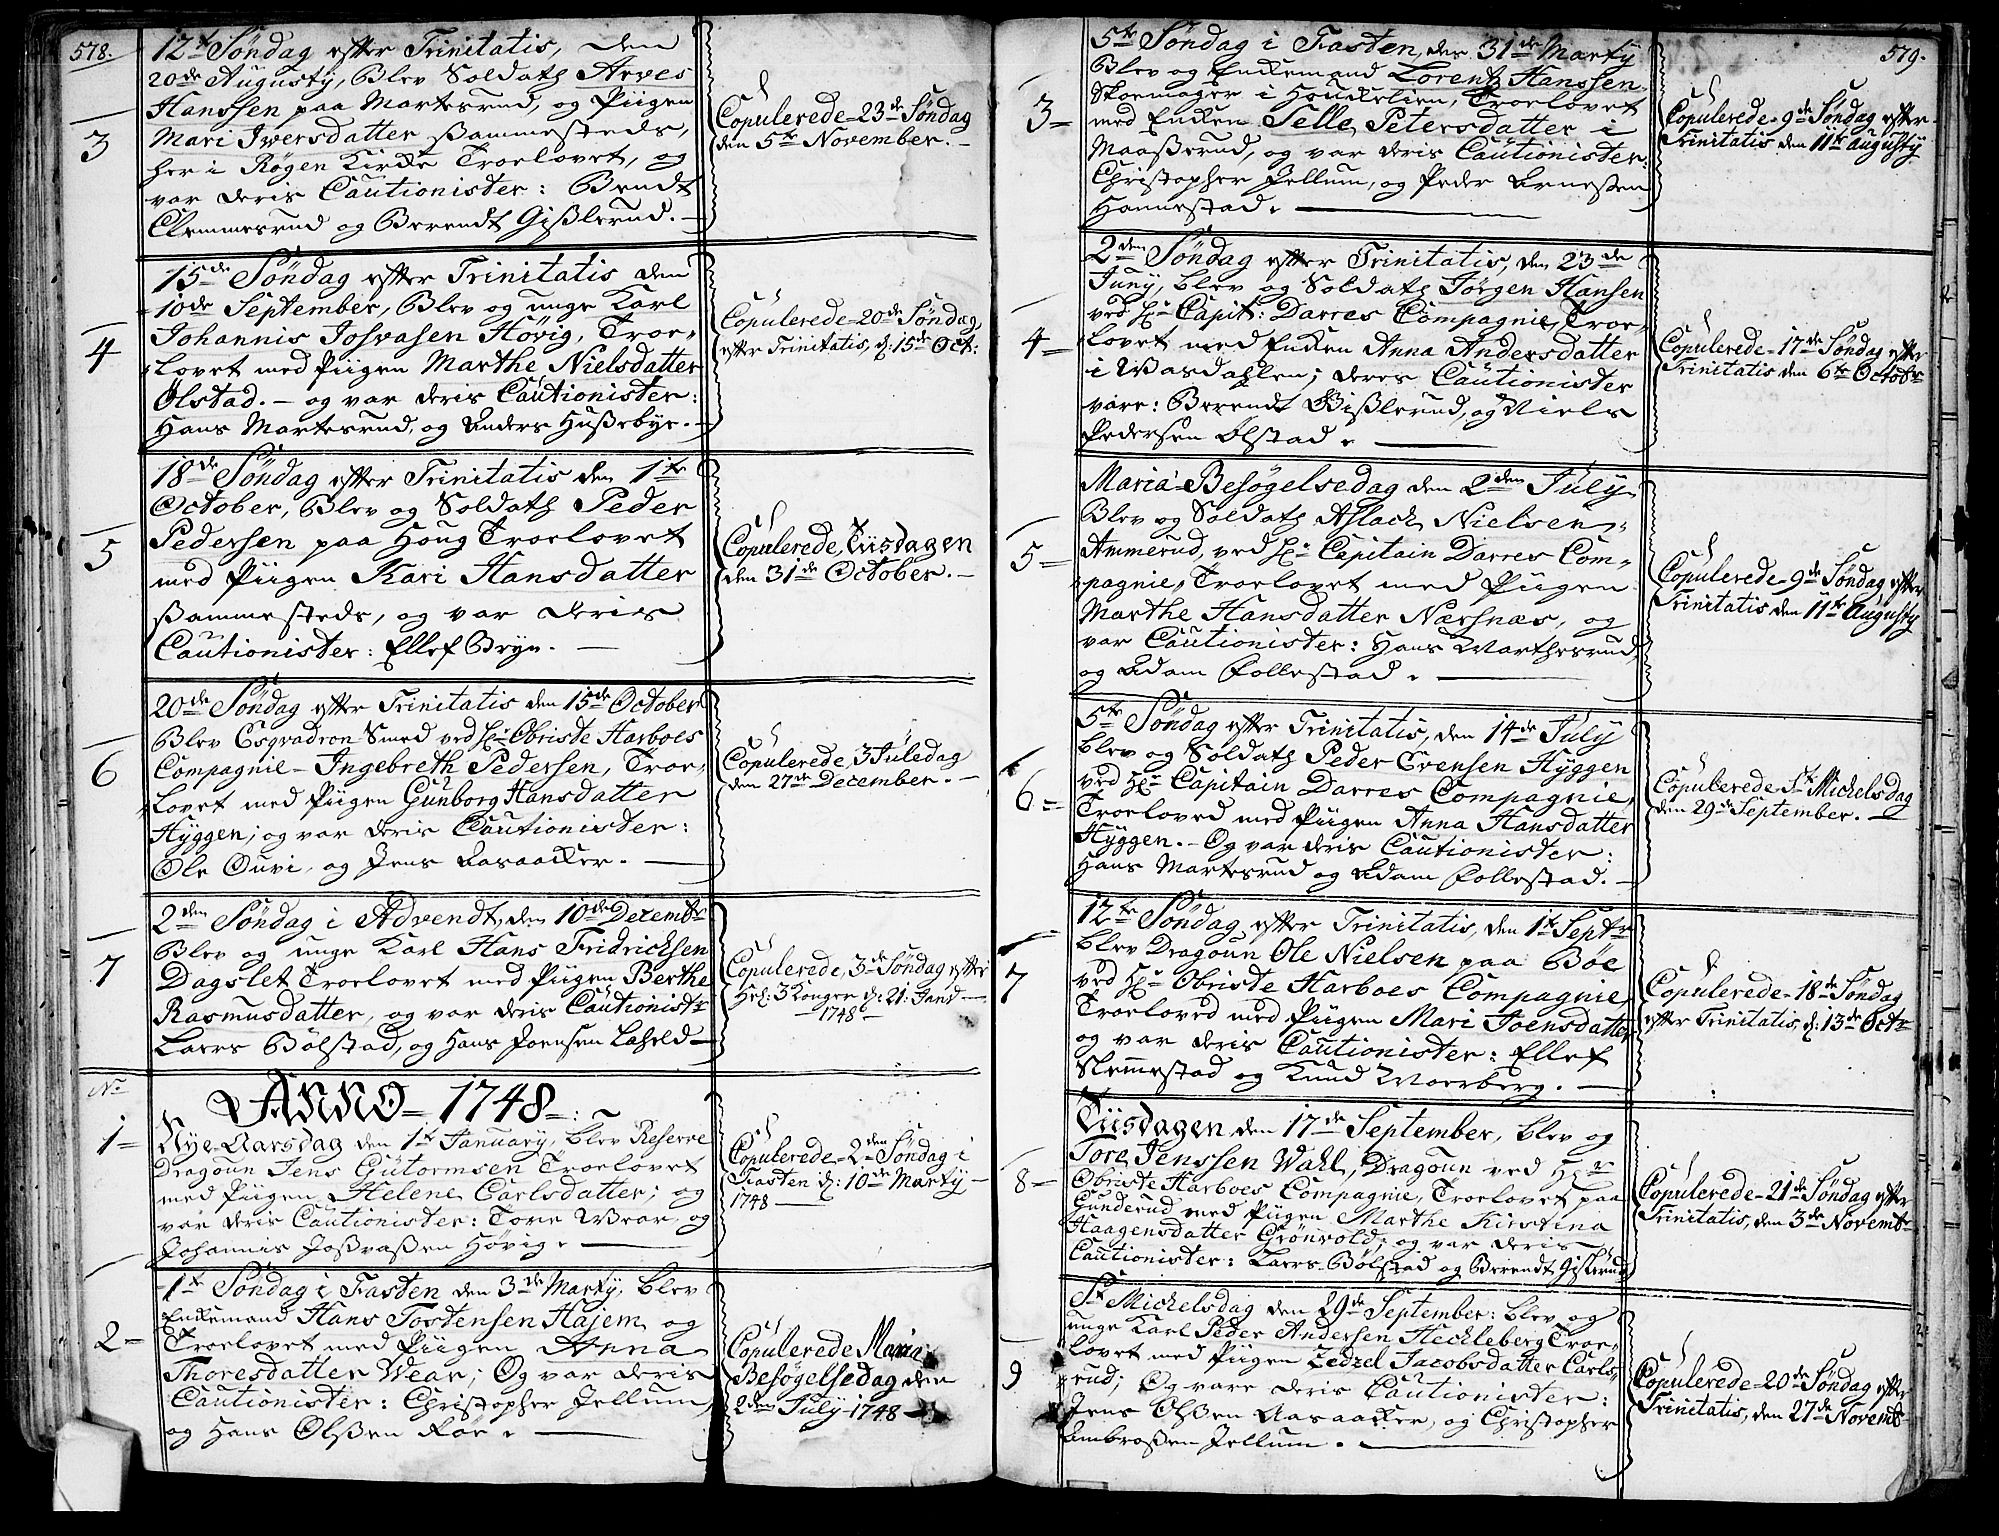 578.
12te Søndag efter Trinitatis, den
20de Augusty, Blev Soldath Arves
Hanssen paa Martesrud, og Piigen
Mari Iversdatter sammesteds,
her i Røgen Kirke Troelovet, og
var deris Cautionister: Bendt
Clemmesrud og Berendt Gißlerud. —
3
Copulerede 23de Søndag
den 5te November. —
15de Søndag efter Trinitatis den
10de September, Blev og unge Karl
Johannis Josvasen Høvig, Troe-
lovet med Piigen Marthe Nielsdatter
Ølstad. — og var deris Cautionister:
Hans Martesrud, og Anders Hußebye. —
4
Copulerede 20de Søndag
efter Trinitatis, d: 15de Oct:
18de Søndag efter Trinitatis den 1te
October, Blev og Soldath Peder
Pedersen paa Houg Troelovet
med Piigen Kari Hansdatter
sammesteds, og var deris
Cautionister: Ellef Bryn. —
5
Copulerede, Tiisdagen
den 31de October. —
20de Søndag efter Trinitatis den 15de October
Blev Esqvadron Smed ved Hr Obriste Harboes
Compagnie — Ingebreth Pedersen, Troe-
lovet med Piigen Gunborg Hansdatter
Hyggen; og var deris Cautionister:
Ole Ouvi, og Jens Aasaacker. —
6
Copulerede, 3 Juledag
den 27de December. —
2den Søndag i Advendt, den 10de Decembr
Blev og unge Karl Hans Fridricksen
Dagslet Troelovet med Piigen Berthe
Rasmusdatter, og var deris Cautionistr
Laers Bølstad, og Hans Joensen Laheld —
7
Copulerede, 3de Søndag efter
Hel: 3 Konger d: 21: Janu —
— 1748 —
No
ANNO — 1748 — :
Nye-Aarsdag den 1te January, blev Reserve
Dragoun Jens Gutormsen Troelovet
med Piigen Helene Carlsdatter; og
var deris Cautionister: Tore Wear, og
Johannis Joßvaßen Høvig. —
1 =
Copulerede — 2den Søndag i
Fasten d: 10de Marty —
1748 —
1te Søndag i Fasten den 3de Marty, blev
Enkemand Hans Tostensen Hajem, og
Troelovet med Piigen Anna
Thoresdatter Wear; Og var deris
Cautionister: Christopher Jellum,
og Hans Olßen Røe. —
2 =
Copulerede Maria
Besøgelsedag den
2den July — 1748 —
579.
5te Søndag i Fasten, den 31de Marty
Blev og Enkemand Lorentz Hanssen
Skoemager i Houckelien, Troelovet
med Enken Selle Petersdatter i
Maaßerud, og var deris Cautionister
Christopher Jellum, og Peder Arneßen
Hannestad. —
3 =
Copulerede — 9de Søndag efter
Trinitatis den 11te Augusty
2den Søndag efter Trinitatis, den 23de
Juny, blev og Soldath Jørgen Hansen
ved Hr Capit: Darres Compagnie, Troe-
lovet med Enken Anna Andersdatter
i Wasdahlen; deres Cautionister
vare: Berendt Gißlerud, og Niels
Pedersen Ølstad. —
4 =
Copulerede — 17de Søndag efter
Trinitatis den 6te Octobr
Maria Besøgelsedag den 2den July
Blev og Soldath Aslach Nielsen
Ammerud, ved Hr Capitain Darres Com-
pagnie, Troelovet med Piigen
Marthe Hansdatter Nærsnæs, og
var Cautionister: Hans Marthesrud
og Adam Follestad. —
5 =
Copulerede — 9de Søndag efter
Trinitatis den 11te Augusty
5te Søndag efter Trinitatis, den 14de July
blev og Soldath Peder Evensen Hyggen
ved Hr Capitain Darres Compagnie,
Troeloved med Piigen Anna Hansdatter
Hyggen. — Og var deris Cautionister:
Hans Martesrud og Adam Follestad. —
6 =
Copulerede St Michelsdag
den 29de September. —
12te Søndag efter Trinitatis, den 1te Septr
blev Dragoun Ole Nielsen paa Bøe
ved Hr Obriste Harboes Compagnie
Troeloved med Piigen Mari Joensdatter
og var deris Cautionister: Ellef
Slemmestad og Knud Waerberg. —
7
Copulerede — 18de Søndag
efter Trinitatis, d: 13de Octr
Tiisdagen den 17de September, blev og
Tore Jenssen Wahl, Dragoun ved Hr
Obriste Harboes Compagnie, Troelovet paa
Gunderud med Piigen Marthe Kirstina
Haagensdatter Grønvold; og var deris
Cautionister: Laers Bølstad og Berendt Gislerud
8 =
Copulerede — 21de Søndag efter
Trinitatis, den 3de Novembr
St Michelsdag den 29de September: blev og
unge Karl Peder Andersen Heckleberg Troe-
lovet med Piigen Zedzel Jacobsdatter Carls-
rud; Og vare deris Cautionister:
Jens Olßen Aasaacker, og Christopher
Ambroßen Jellum. —
9
Copulerede — 20de Søndag efter
Trinitatis, den 27de Novemb